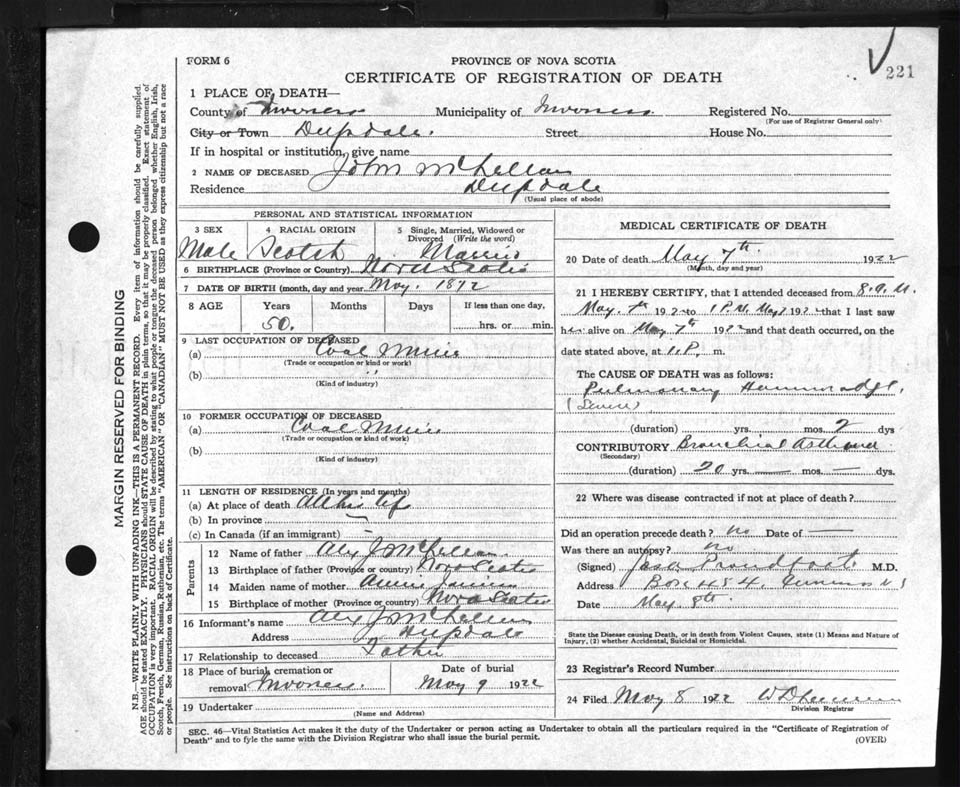 FORM 6
PROVINCE OF NOVA SCOTIA
CERTIFICATE OF REGISTRATION OF DEATH
221
1 PLACE OF DEATH—
County of Inverness Municipality of Inverness Registered No.
(For use of Registrar General only)
City or Town Deepdale. Street House No.
If in hospital or institution, give name
2 NAME OF DECEASED John McLellan
Residence Deepdale
(Usual place of abode)
PERSONAL AND STATISTICAL INFORMATION
3 SEX 4 RACIAL ORIGIN 5 Single, Married, Widowed or Divorced (Write the word)
Male Scotch Married
6 BIRTHPLACE (Province or Country) Nova Scotia
7 DATE OF BIRTH (month, day and year) May. 1872
8 AGE Years Months Days If less than one day,
50. hrs. or min.
9 LAST OCCUPATION OF DECEASED
(a) Coal Miner
(Trade or occupation or kind or work)
(b) "
(Kind of industry)
10 FORMER OCCUPATION OF DECEASED
(a) Coal Miner
(Trade or occupation or kind of work)
(b)
(Kind of industry)
11 LENGTH OF RESIDENCE (In years and months)
(a) At place of death All his life
(b) In province
(c) In Canada (if an immigrant) –
Parents
12 Name of father Alex J McLellan
13 Birthplace of father (Province or country) Nova Scotia
14 Maiden name of mother
15 Birthplace of mother (Province or country) Nova Scotia
16 Informant's name Alex J McLellan
Address Deepdale
17 Relationship to deceased Father
18 Place of burial, cremation or removal Inverness. Date of burial May 9 1922
19 Undertaker
(Name and Address)
MEDICAL CERTIFICATE OF DEATH
20 Date of death May 7th. 1922
(Month, day and year)
21 I HEREBY CERTIFY, that I attended deceased from 8. A. M.
May. 192 to 1 P.M. May 7 1922 that I last saw
him alive on May 7th 1922 and that death occurred, on the
date stated above, at 1. P. m.
The CAUSE OF DEATH was as follows:
Pulmonary Hemorrhage.
(Severe)
(duration) yrs. mos. 2 dys
CONTRIBUTORY Bronchial Asthma
(Secondary)
(duration) 20 yrs. — mos. — dys.
22 Where was disease contracted if not at place of death?
Did an operation precede death? no Date of —
Was there an autopsy? no
(Signed) Jas. Proudfoot M.D.
Address Box 454, Inverness N S
Date May. 8th.
State the Disease causing Death, or in death from Violent Causes, state (1) Means and Nature of
Injury, (2) whether Accidental, Suicidal or Homicidal.
23 Registrar's Record Number
24 Filed May 8 1922
Division Registrar
SEC. 46—Vital Statistics Act makes it the duty of the Undertaker or person acting as Undertaker to obtain all the particulars required in the "Certificate of Registration of
Death" and to fyle the same with the Division Registrar who shall issue the burial permit.
(OVER)
MARGIN RESERVED FOR BINDING
N.B.—WRITE PLAINLY WITH UNFADING INK—THIS IS A PERMANENT RECORD. Every item of information should be carefully supplied.
AGE should be stated EXACTLY. PHYSICIANS should STATE CAUSE OF DEATH in plain terms, so that it may be properly classified. Exact statement of
OCCUPATION is very important. RACIAL ORIGIN will be described by stating to what people or tongue the deceased person belonged whether English, Irish,
Scotch, French, German, Russian, Ruthenian, etc. The terms "AMERICAN" OR "CANADIAN" MUST NOT BE USED as they express citizenship but not a race
or people. See instructions on back of Certificate.